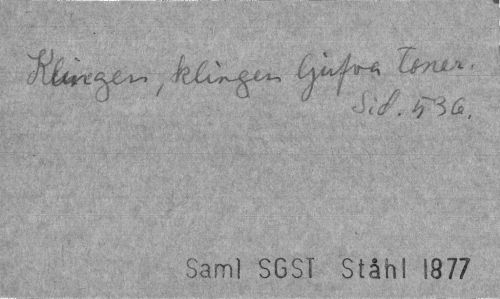 Klingen, klingen ljufva toner.
Sid. 536.
Saml SGST Ståhl 1877